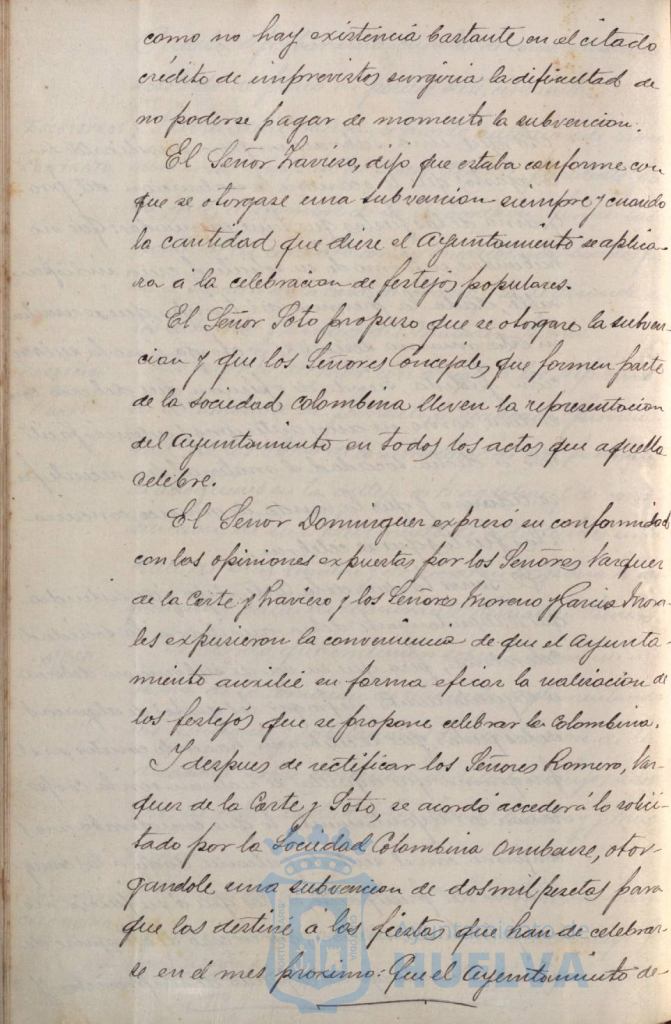 como no hay existencia bastante en el citado
crédito de imprevistos surgiria la dificultad de
no poderse pagar de momento la subvencion.
El Señor Travieso, dijo que estaba conforme con
que se otorgase una subvencion siempre y cuando
la cantidad que diese el Ayuntamiento se aplica-
ra á la celebracion de festejos populares.
El Señor Soto propuso que se otorgase la subven-
cion y que los Señores Concejales que formen parte
de la sociedad colombina lleven la representacion
del Ayuntamiento en todos los actos que aquella
celebre.
El Señor Dominguez expresó su conformidad
con las opiniones expuestas por los Señores Vazquez
de la Corte y Travieso y los Señores Moreno y Garcia Mora-
les expusieron la conveniencia de que el Ayunta-
miento auxilie en forma eficaz la realizacion de
los festejos que se propone celebrar la Colombina.
Y despues de rectificar los Señores Romero, Vaz-
quez de la Corte y Soto, se acordó acceder á lo solici-
tado por la Sociedad Colombina Onubense, otor-
gandole una subvencion de dos mil pesetas para
que las destine á las fiestas que han de celebrar-
se en el mes proximo: Que el Ayuntamiento de-
Ayuntamiento de
HUELVA